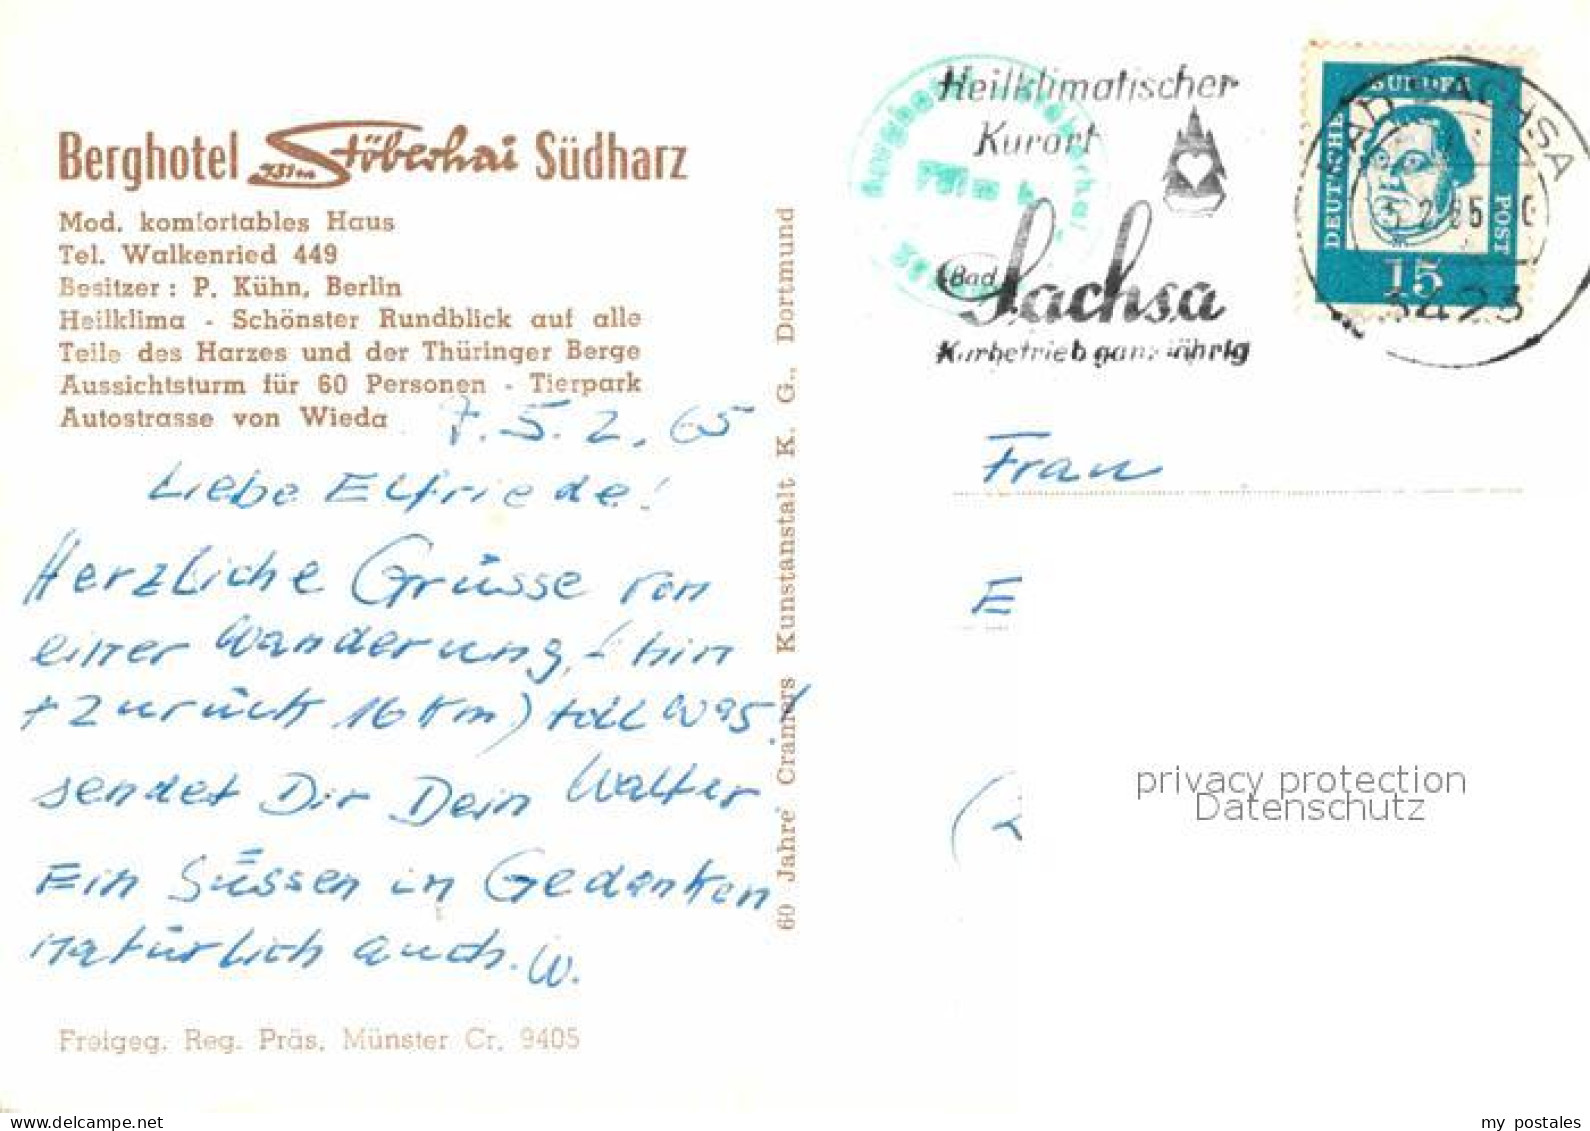 Berghotel Stöberhai Südharz
Mod. komfortables Haus
Tel. Walkenried 449
Besitzer : P. Kühn, Berlin
Heilklima - Schönster Rundblick auf alle
Teile des Harzes und der Thüringer Berge
Aussichtsturm für 60 Personen - Tierpark
Autostrasse von Wieda
5.2.65
Liebe Elfriede!
Herzliche Grüsse von
einer Wanderung, (hin
+ zurück 16 Km) toll was!
sendet Dir Dein Walter
Ein Süssen in Gedanken
natürlich auch. W.
Freigeg. Reg. Präs. Münster Cr. 9405
60 Jahre Cramers Kunstanstalt K. G., Dortmund
Heilklimatischer
Kurort
Bad
Sachsa
Kurbetrieb ganzjährig
DEUTSCHE
POST
15
BAD SACHSA
2.65
3423
Frau
E
privacy protection
Datenschutz
www.delcampe.net
my_postales